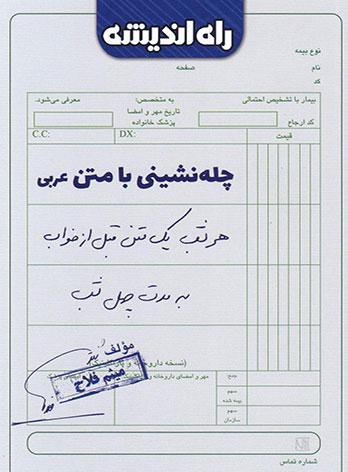 راه اندیشه
نوع بیمه
نام
صفحه
کد
بیمار با تشخیص احتمالی
به متخصص:
معرفی می‌شود.
کد ارجاع
تاریخ مهر و امضا
پزشک خانواده
C.C:
DX:
قیمت
چله‌نشینی با متن عربی
هر شب یک متن قبل از خواب
به مدت چهل شب
مؤلف
میثم فلاح
(نسخه داروخانه و
مهر و امضای داروخانه و
جمع:
سهم
بیمه شده
سهم
سازمان
شماره تماس